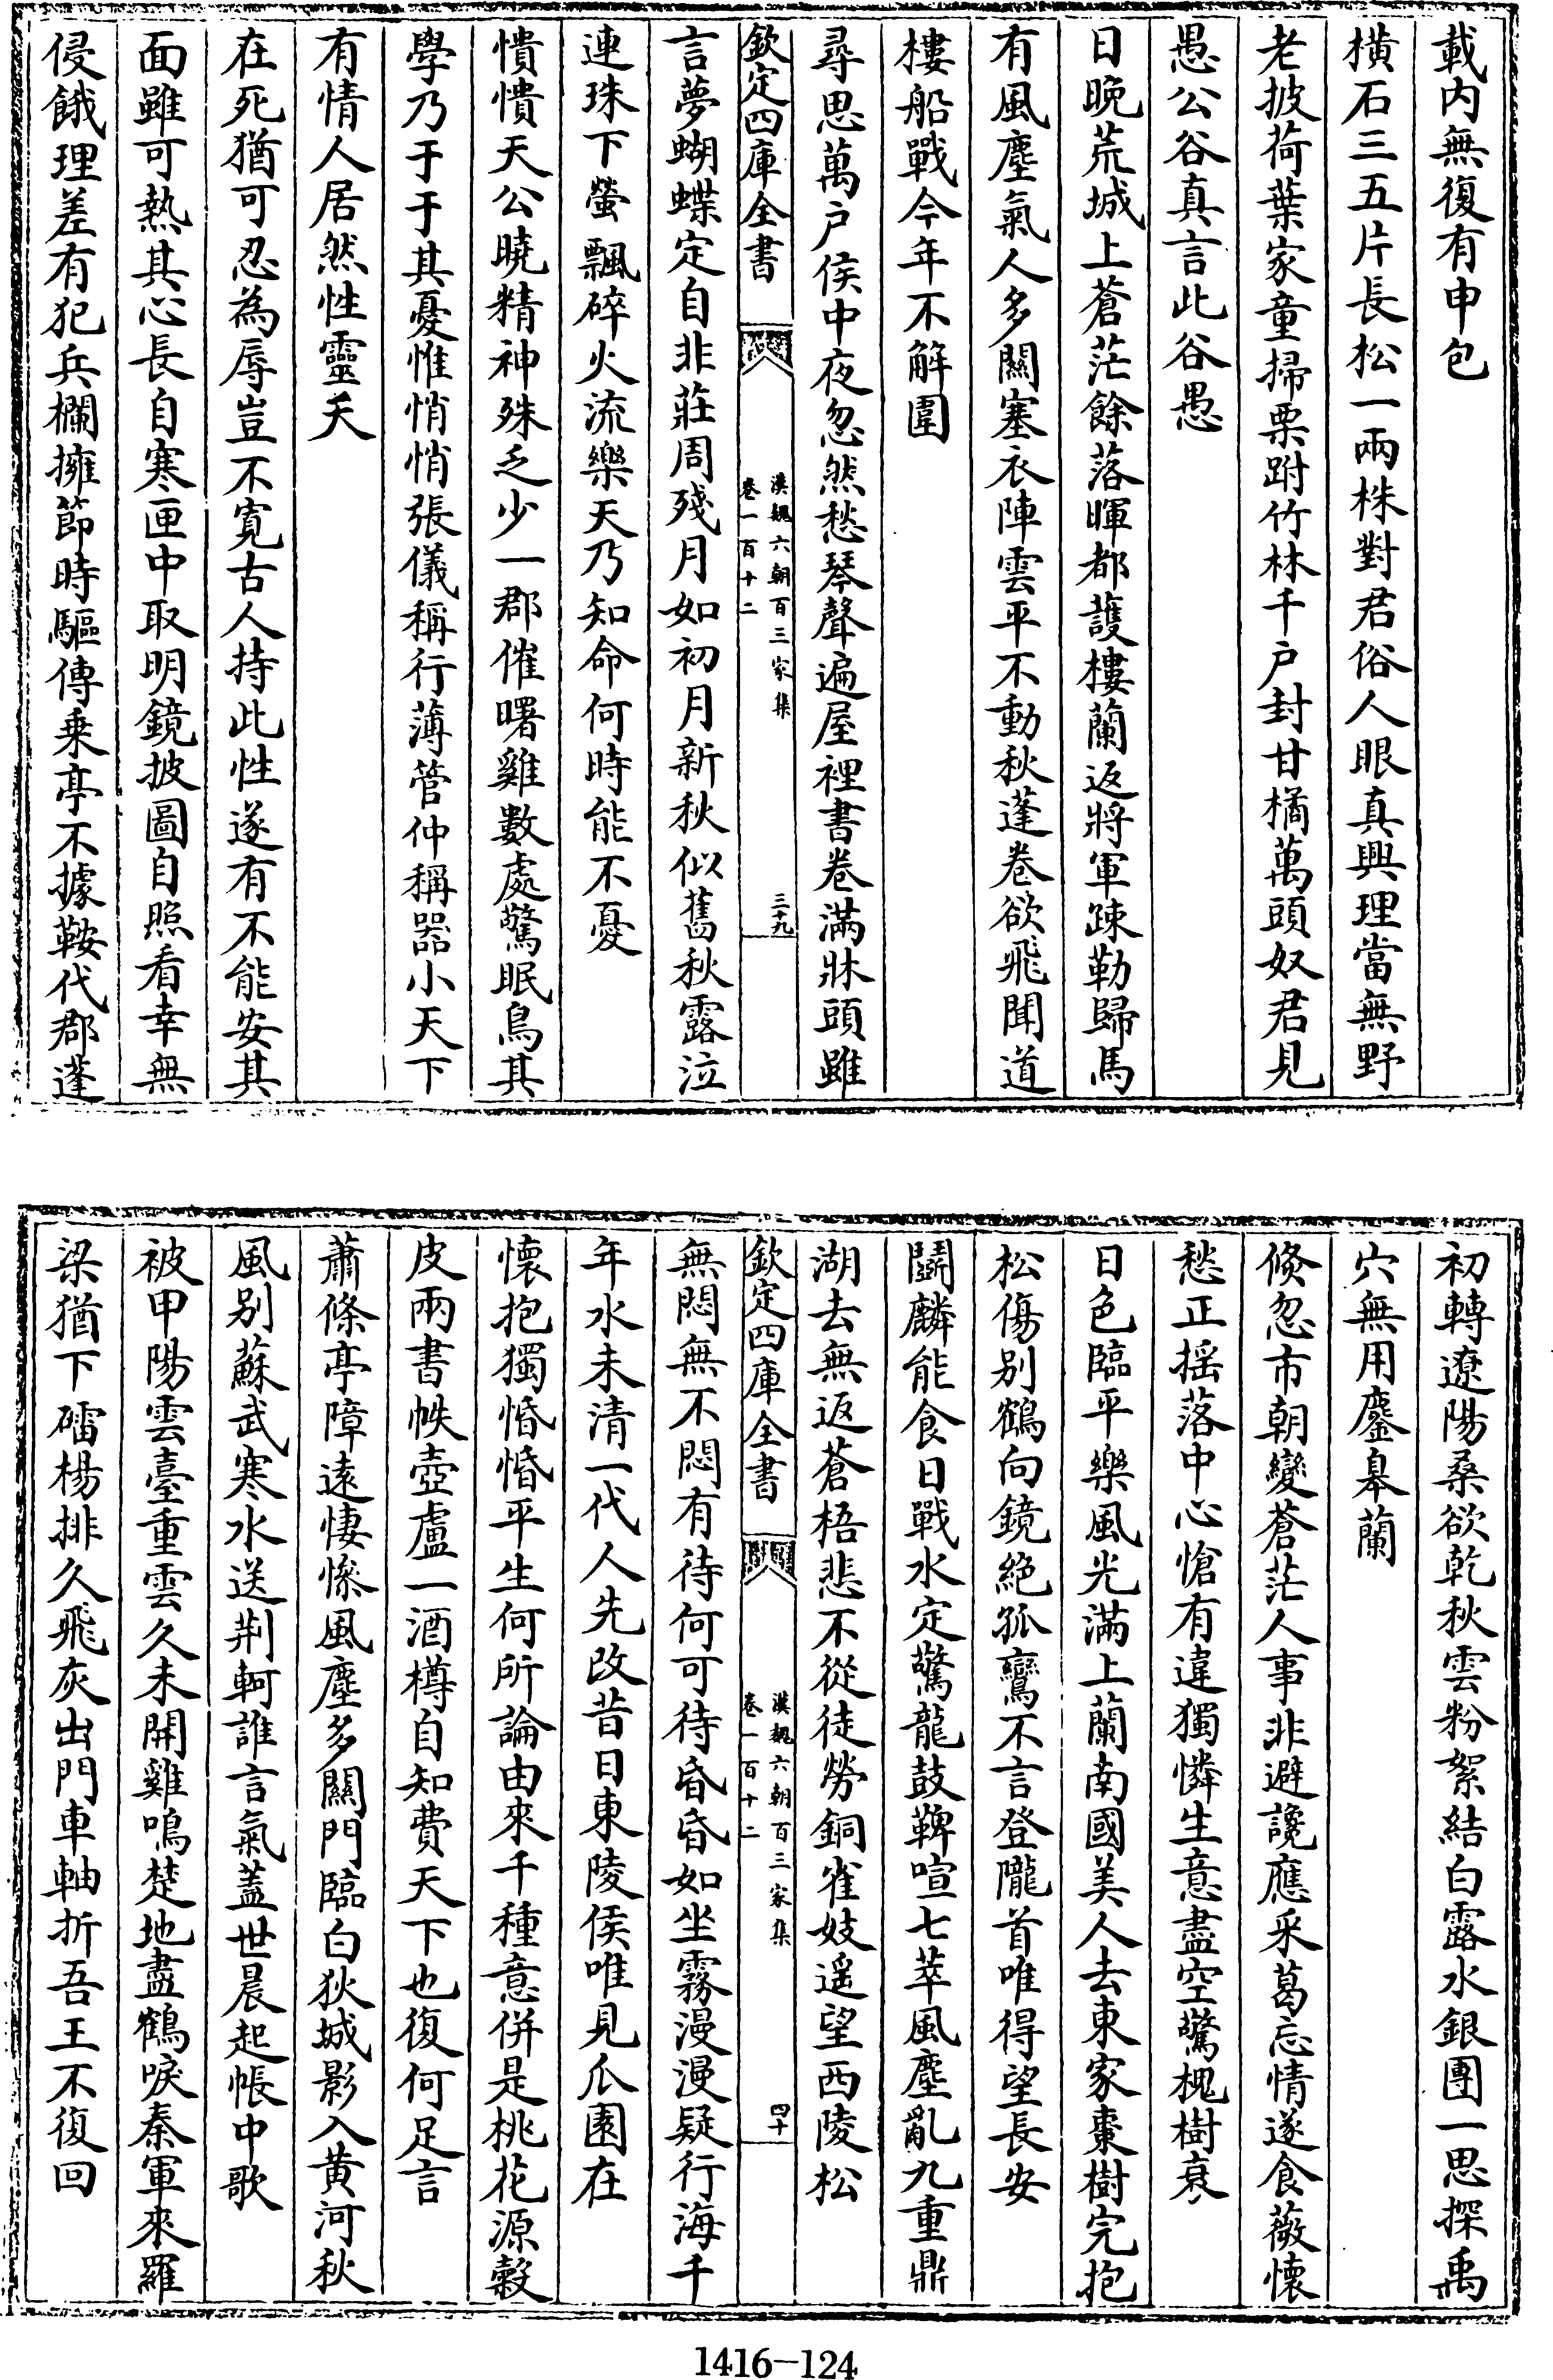 載内無復有申包
橫石三五片長松一兩株對君俗人眼真興理當無野
老披荷葉家童掃栗跗竹林千户封甘橘萬頭奴君見
愚公谷真言此谷愚
日晚荒城上蒼茫餘落暉都護樓蘭返將軍疎勒歸馬
有風塵氣人多關塞衣陣雲平不動秋蓬卷欲飛聞道
樓船戰今年不解圍
尋思萬户侯中夜忽然愁琴聲遍屋裡書卷滿牀頭雖
欽定四庫全書
漢魏六朝百三家集
卷一百十二
三十九
言夢蝴蝶定自非莊周殘月如初月新秋似舊秋露泣
連珠下螢飄碎火流樂天乃知命何時能不憂
憒憒天公曉精神殊乏少一郡催曙雞數處驚眠鳥其
學乃于于其憂惟悄悄張儀稱行薄管仲稱器小天下
有情人居然性靈夭
在死猶可忍為辱豈不寬古人持此性遂有不能安其
面雖可熱其心長自寒匣中取明鏡披圖自照看幸無
侵餓理差有犯兵欄擁節時驅傳乗亭不據鞍代郡蓬
初轉遼陽桑欲乾秋雲粉絮結白露水銀團一思探禹
穴無用鏖皋蘭
倐忽市朝變蒼茫人事非避讒應采葛忘情遂食薇懷
愁正揺落中心愴有違獨憐生意盡空驚槐樹衰
日色臨平樂風光滿上蘭南國美人去東家棗樹完抱
松傷别鶴向鏡絶孤鸞不言登隴首唯得望長安
鬭麟能食日戰水定驚龍鼓鞞喧七萃風塵亂九重鼎
湖去無返蒼梧悲不從徒勞銅雀妓遥望西陵松
欽定四庫全書
漢魏六朝百三家集
卷一百十二
四十
無悶無不悶有待何可待昏昏如坐霧漫漫疑行海千
年水未清一代人先改昔日東陵侯唯見瓜園在
懷抱獨惛惛平生何所論由來千種意併是桃花源縠
皮兩書帙壺盧一酒樽自知費天下也復何足言
蕭條亭障遠悽慘風塵多關門臨白狄城影入黄河秋
風别蘇武寒水送荆軻誰言氣蓋世晨起帳中歌
被甲陽雲臺重雲久未開雞鳴楚地盡鶴唳秦軍來羅
梁猶下礌楊排久飛灰出門車軸折吾王不復回
1416-124